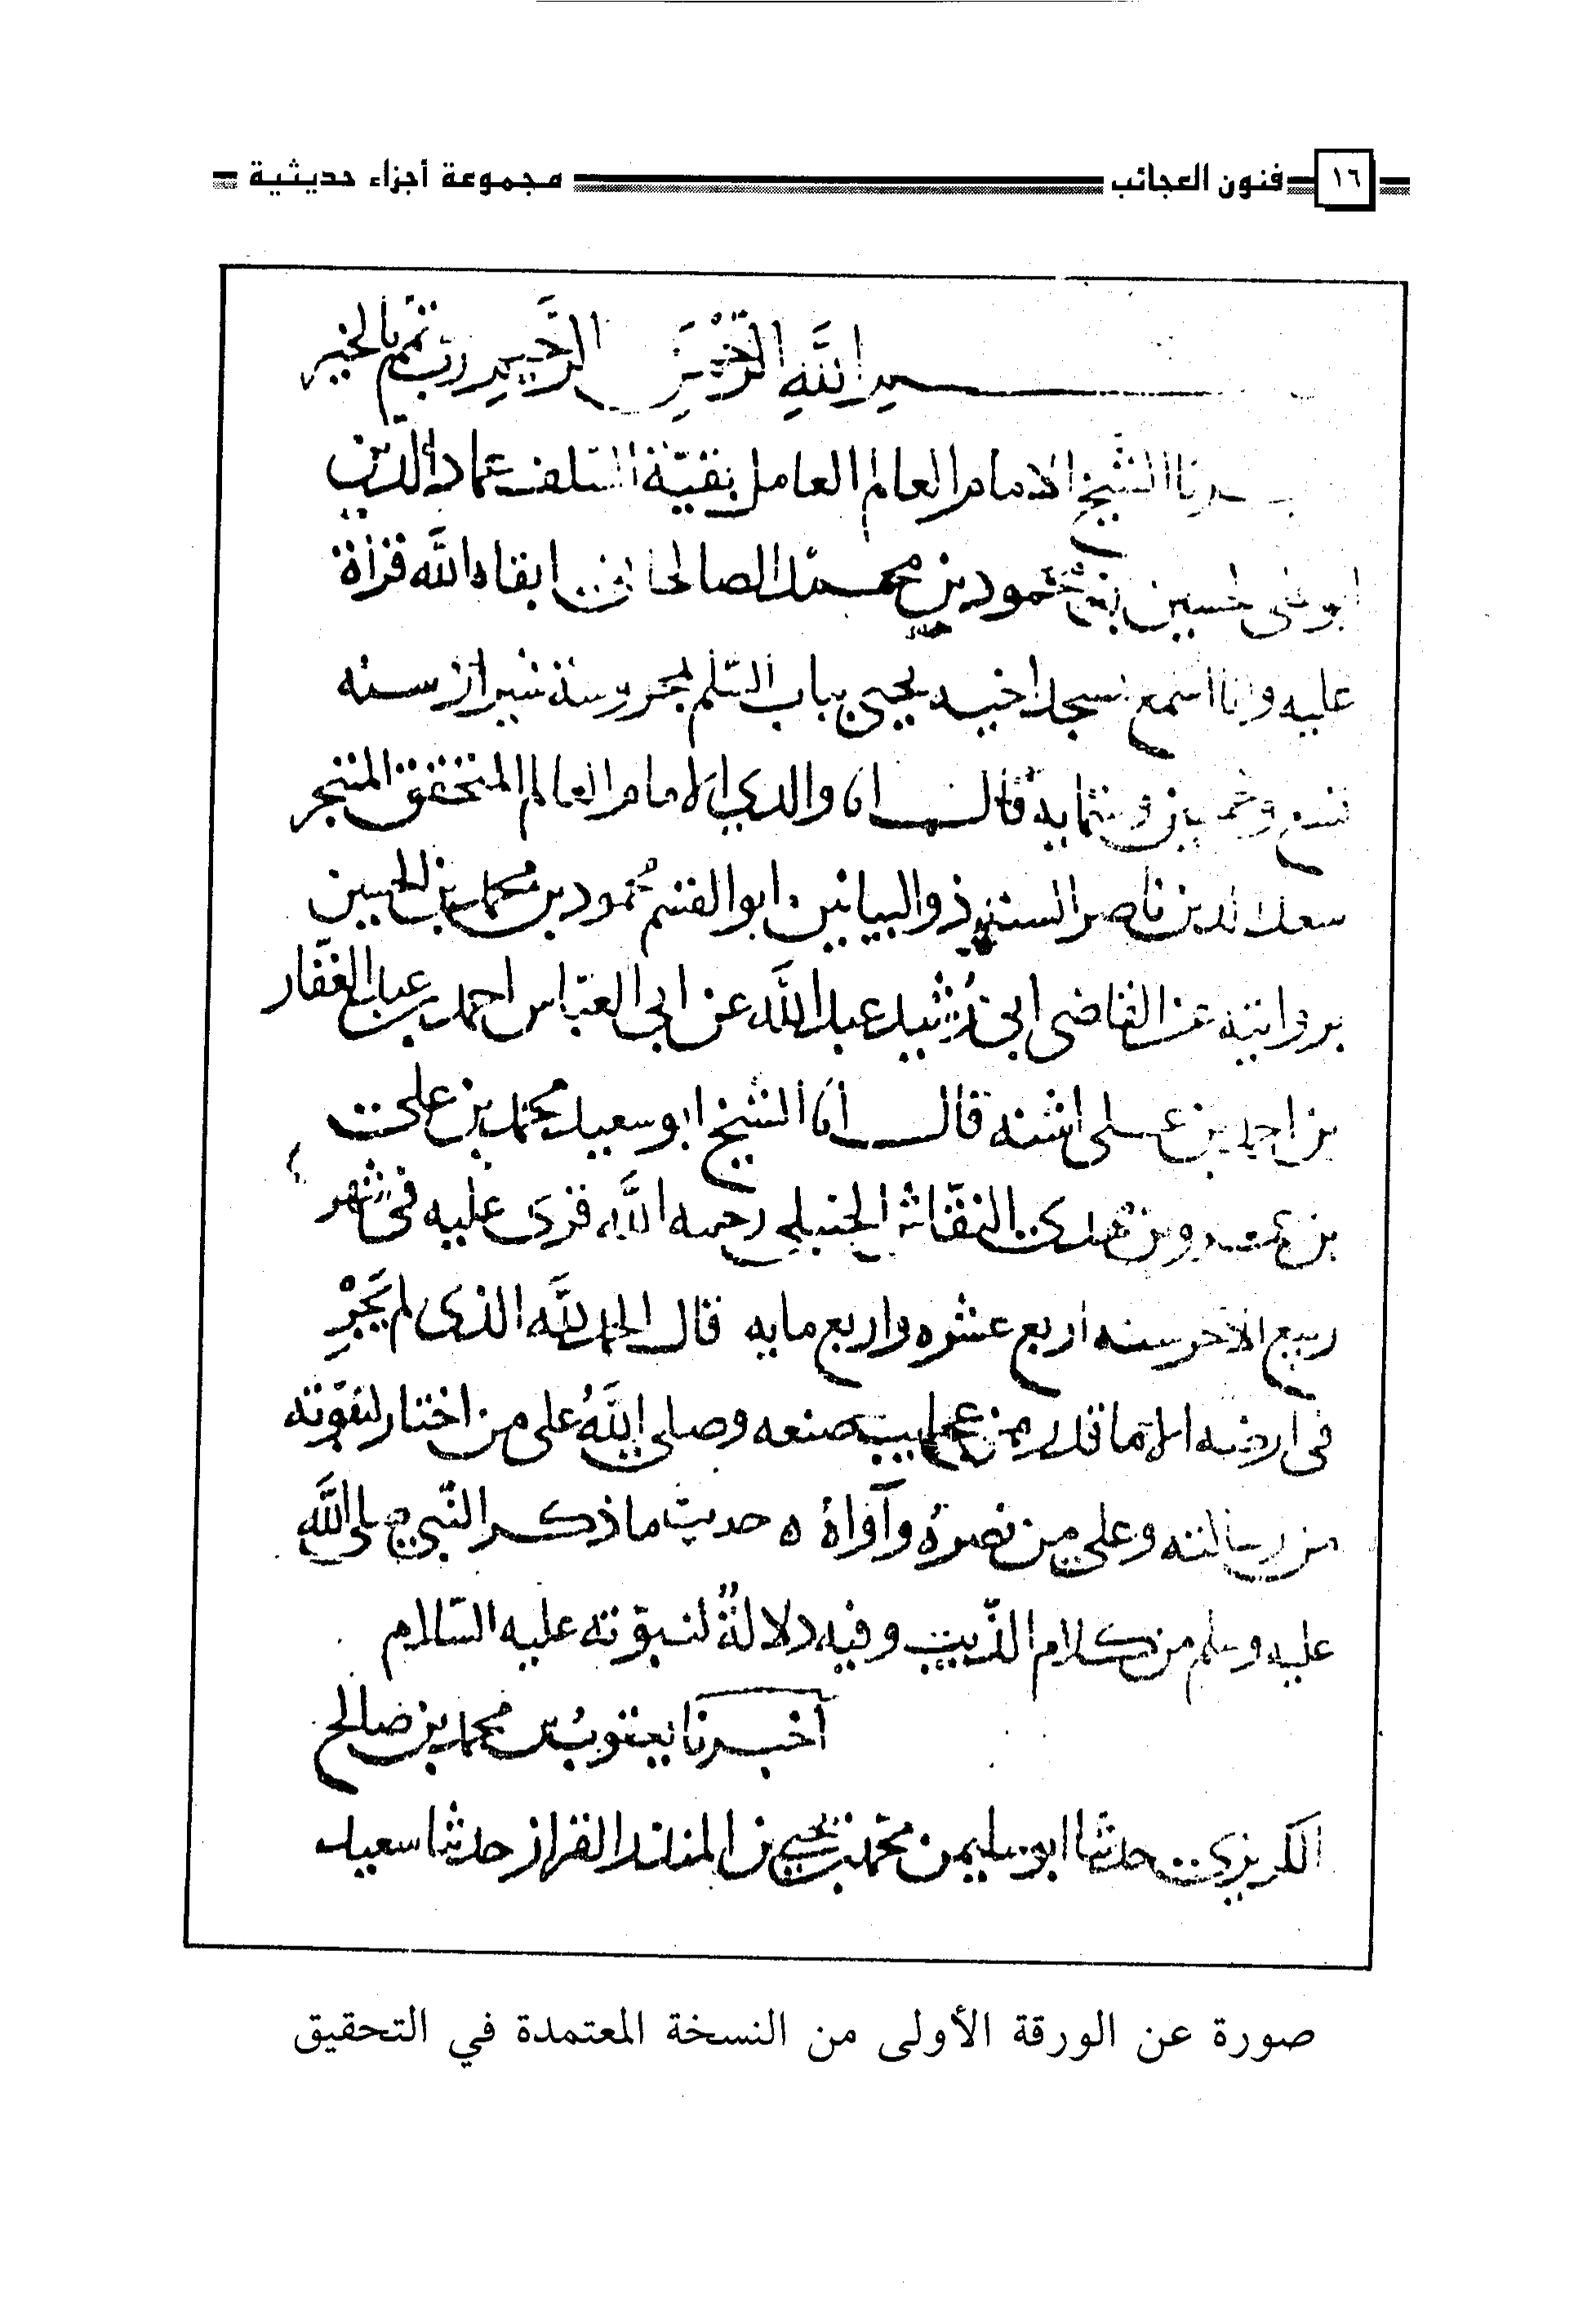 ١٦ فنون العجائب مجموعة أجزاء حديثية
بسم الله الرحمن الرحيم رب تمم بالخير
الشيخ الامام العالم العامل بقية السلف عماد الدين
حسين بن محمود بن محمد الصالحانى ابقاه الله قراة
عليه وانا اسمع بمسجد يحيى بباب السلم بمحروسة شيراز سنه
تسع وخمسين وستمايه قال انا والدي الامام العالم المتحقق المتبحر
سعد الدين ناصر السنه ذو البيانين ابو الفتح محمود بن محمد بن الحسين
بروايته عن القاضى ابى رشيد عبد الله عن ابى العباس احمد بن عبد الغفار
بن احمد بن على اشته قال انا الشيخ ابو سعيد محمد بن على
بن عمرو بن مهدى النقاش الحنبلي رحمه الله قرى عليه فى شهر
ربيع الاخر سنه اربع عشره واربع مايه قال الحمد لله الذى لم يجر
فى ارضه الا ما قدر من عجايب صنعه وصلى الله على من اختار لنبوته
من رسالته وعلى من نصره وآواه ه حديث ما ذكر النبي صلى الله
عليه وسلم من كلام الذيب وفيه دلالة لنبوته عليه السلام
أخبرنا يعقوب بن محمد بن صالح
الكريزى حدثنا ابو سليمن محمد بن يحيى بن المنذر القزاز حدثنا سعيد
صورة عن الورقة الأولى من النسخة المعتمدة في التحقيق